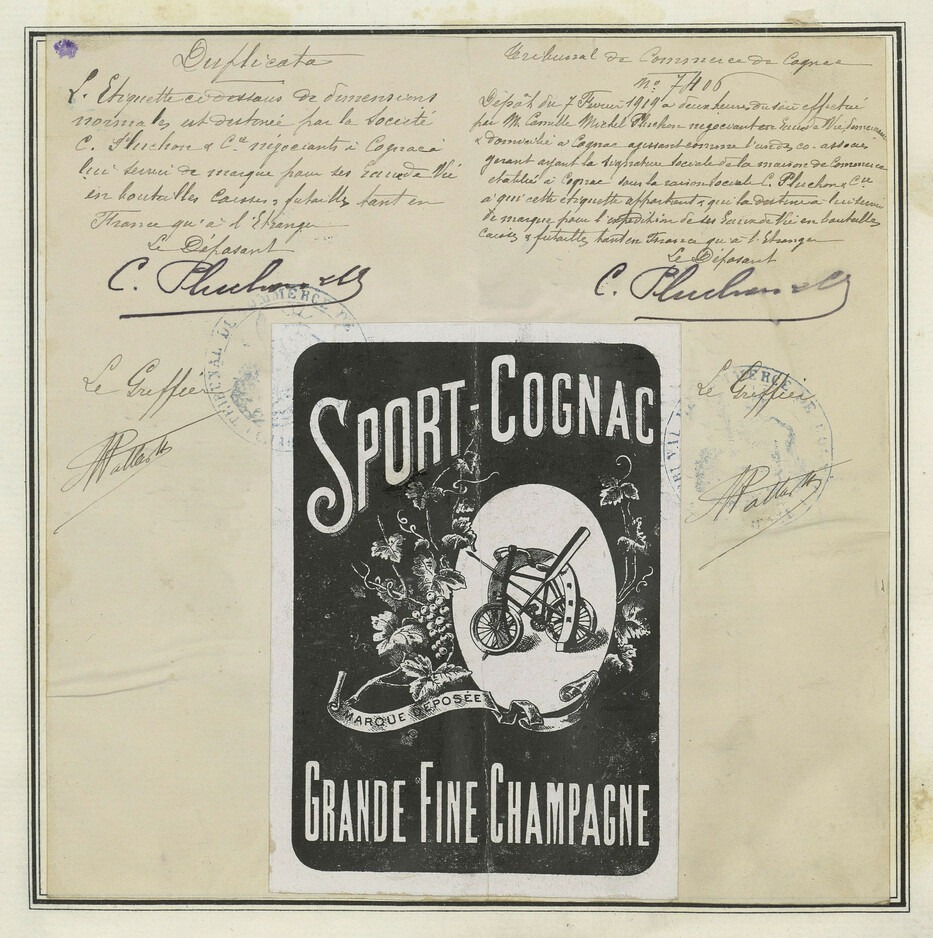 Duplicata
L'Etiquette ci dessous de dimensions
normales est destinée par la Société
C. Pluchon & Cie négociants à Cognac à
lui servir de marque pour ses Eaux de Vie
en bouteilles Caisses & futailles tant en
France qu'à l'Etranger
Le Déposant
C. Pluchon & Cie
Le Greffier
Tribunal de Commerce de Cognac
No 7406
Dépôt du 7 Février 1919 à deux heures du soir effectué
par M. Camille Michel Pluchon négociant en Eaux de Vie demeurant
& domicilié à Cognac agissant comme l'un des co-associés
gérant ayant la signature sociale de la maison de Commerce
établie à Cognac sous la raison sociale C. Pluchon & Cie
à qui cette étiquette appartient & qui la destine à lui servir
de marque pour l'expédition de ses Eaux de Vie en bouteilles
Caisses & futailles tant en France qu'à l'Etranger
Le Déposant
C. Pluchon & Cie
Le Greffier
TRIBUNAL DE COMMERCE DE
TRIBUNAL DE COMMERCE DE COGNAC
SPORT-COGNAC
MARQUE DÉPOSÉE
GRANDE FINE CHAMPAGNE